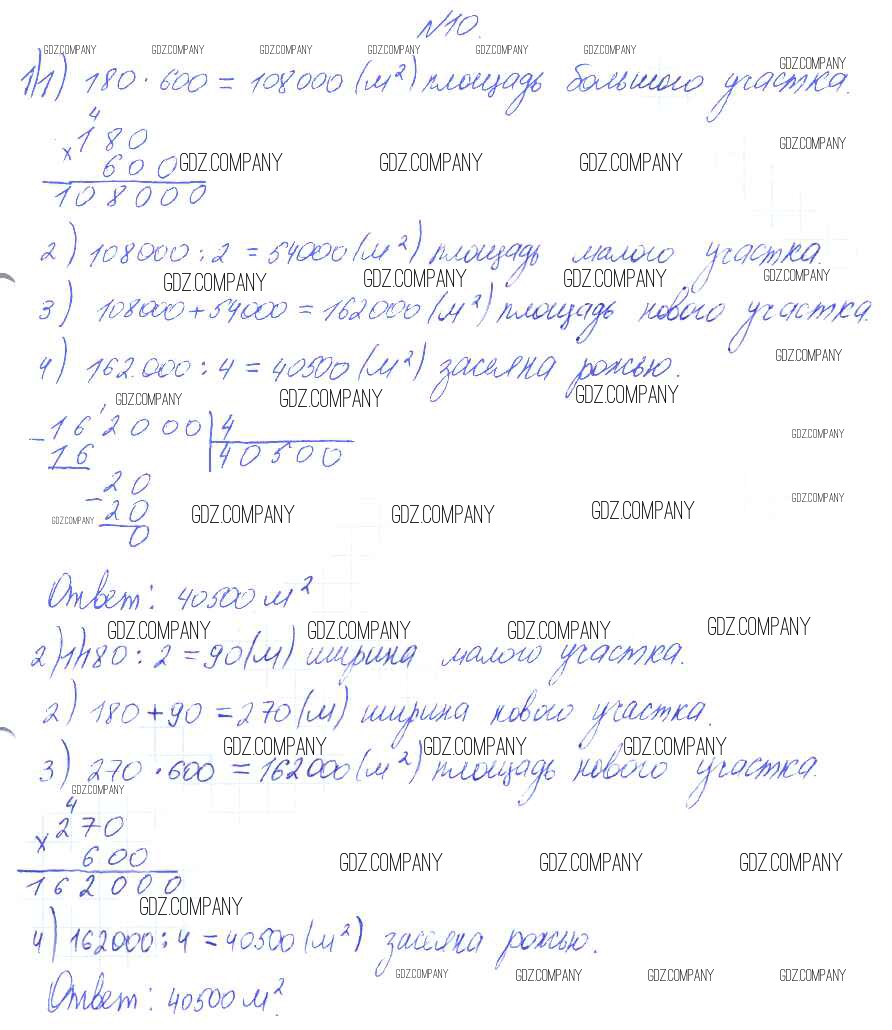 №10.
GDZ.COMPANY GDZ.COMPANY GDZ.COMPANY GDZ.COMPANY GDZ.COMPANY GDZ.COMPANY GDZ.COMPANY
1)1) 180 · 600 = 108000 (м²) площадь большого участка.
4
× 180 GDZ.COMPANY
600 GDZ.COMPANY GDZ.COMPANY GDZ.COMPANY
108000
2) 108000 : 2 = 54000 (м²) площадь малого участка.
GDZ.COMPANY GDZ.COMPANY GDZ.COMPANY GDZ.COMPANY
3) 108000 + 54000 = 162000 (м²) площадь нового участка.
GDZ.COMPANY
4) 162.000 : 4 = 40500 (м²) засеяна рожью.
GDZ.COMPANY GDZ.COMPANY GDZ.COMPANY
- 162000 | 4 GDZ.COMPANY
16 40500
20
GDZ.COMPANY - 20 GDZ.COMPANY GDZ.COMPANY GDZ.COMPANY GDZ.COMPANY
0
Ответ: 40500 м²
GDZ.COMPANY GDZ.COMPANY GDZ.COMPANY GDZ.COMPANY
2)1)180 : 2 = 90 (м) ширина малого участка.
2) 180 + 90 = 270 (м) ширина нового участка.
GDZ.COMPANY GDZ.COMPANY GDZ.COMPANY
3) 270 · 600 = 162000 (м²) площадь нового участка.
GDZ.COMPANY
4
× 270
600 GDZ.COMPANY GDZ.COMPANY GDZ.COMPANY
162000
GDZ.COMPANY
4) 162000 : 4 = 40500 (м²) засеяна рожью.
GDZ.COMPANY GDZ.COMPANY GDZ.COMPANY GDZ.COMPANY
Ответ: 40500 м².